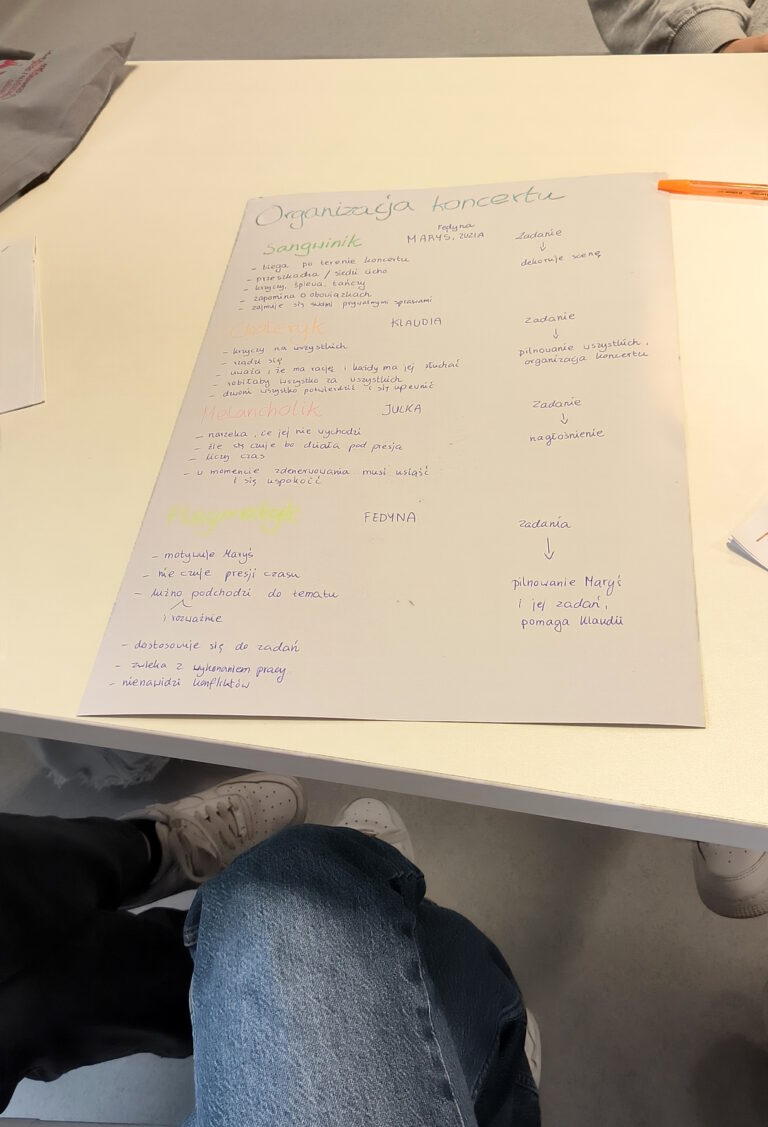 Organizacja koncertu
Sangwinik
Fedyna
MARYŚ, ZUZIA
Zadanie
↓
dekoruje scenę
- biega po terenie koncertu
- przeszkadza / siedzi cicho
- krzyczy, śpiewa, tańczy
- zapomina o obowiązkach
- zajmuje się swoimi prywatnymi sprawami
Choleryk
KLAUDIA
Zadanie
↓
pilnowanie wszystkich,
organizacja koncertu
- krzyczy na wszystkich
- rządzi się
- uważa, że ma rację i każdy ma jej słuchać
- robiłaby wszystko za wszystkich
- dzwoni wszystko potwierdzić i się upewnić
Melancholik
JULKA
Zadanie
↓
nagłośnienie
- narzeka, że jej nie wychodzi
- źle się czuje bo działa pod presją
- liczy czas
- w momencie zdenerwowania musi usiąść
i się uspokoić
Flegmatyk
FEDYNA
zadania
↓
pilnowanie Maryś
i jej zadań,
pomaga Klaudii
- motywuje Maryś
- nie czuje presji czasu
- luźno podchodzi do tematu
i rozważnie
- dostosowuje się do zadań
- zwleka z wykonaniem pracy
- nienawidzi konfliktów